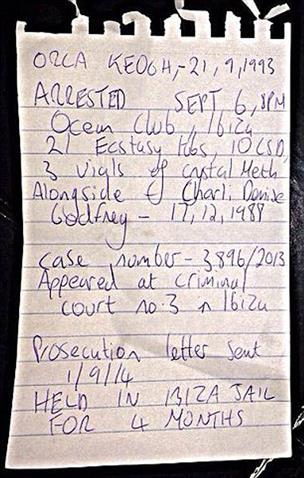 ORCA KEOGH,-21,9,1993
ARRESTED SEPT 6, 8PM
Ocean Club, Ibiza
21 Ecstasy tbs, 10 LSD,
3 vials of crystal Meth
Alongside Charli Denise
Godfrey - 17,12,1989
case number - 3896/2013
Appeared at criminal
court no.3 n Ibiza
Prosecution letter sent
1/9/14
HELD IN IBIZA JAIL
FOR 4 MONTHS